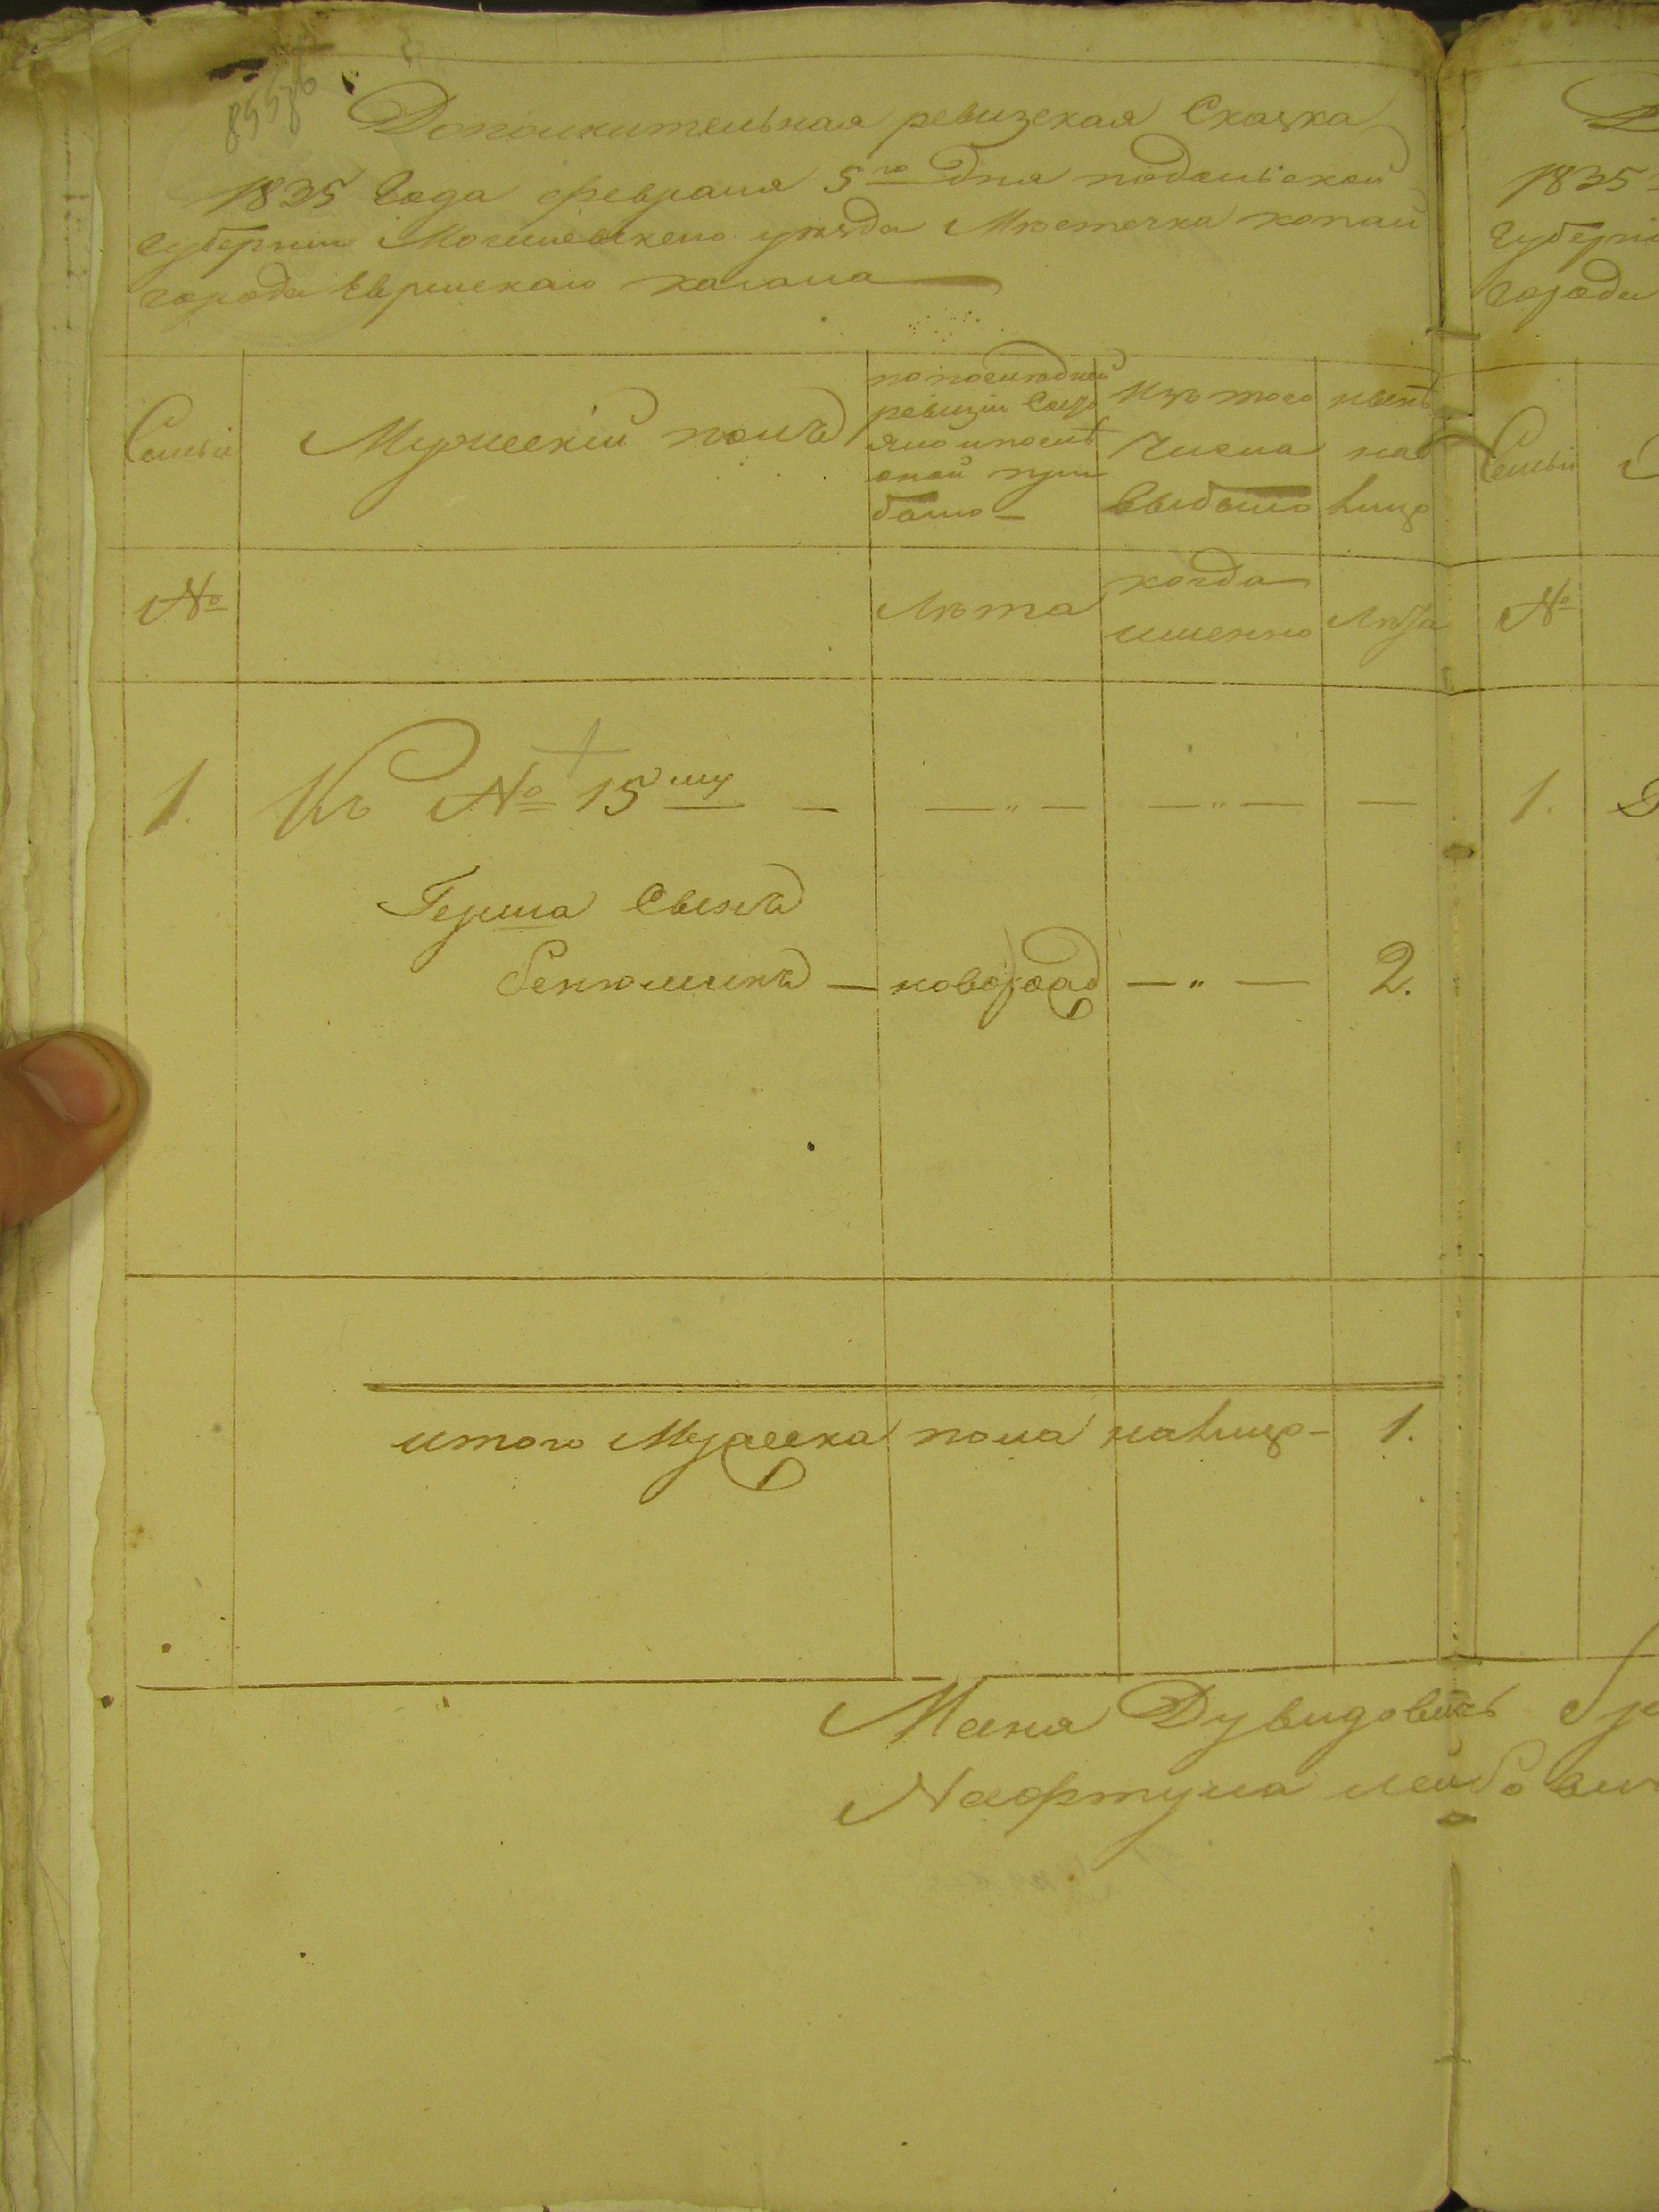 Дополнительная ревизская Сказка
1835 Года февраля 5го дня подольской
Губернии Могилевского уезда Местечка копай
города Еврейскаго кагала
Семьи
Мужескій полъ
по последней
ревизіи Состо
яло и после
оной при
было
Изъ того
Числа
выбыло
ныне
на
лицо
№
Лѣта
когда
именно
Лѣта
1. Къ № 15му — — „ — — „ — —
Герша Сынъ
Бенюминъ — новорожд — „ — 2.
итого Мужеска пола на лицо — 1.
Мана Дувидовичъ
Нафтула лейбович
1835
Губерні
города
Семьи
№
1.